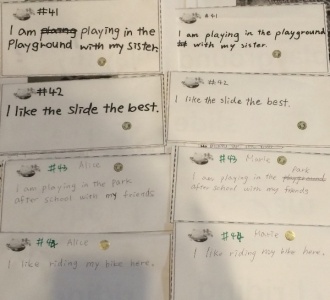 #41
I am playing in the
Playground with my sister.
#41
I am playing in the playground
with my sister.
#42
I like the slide the best.
#42
I like the slide the best.
#43 Alice
I am playing in the park
after school with my friends
#43
park
I am playing in the playground
after school with my friends
#44 Alice
I like riding my bike here.
#44
I like riding my bike here.